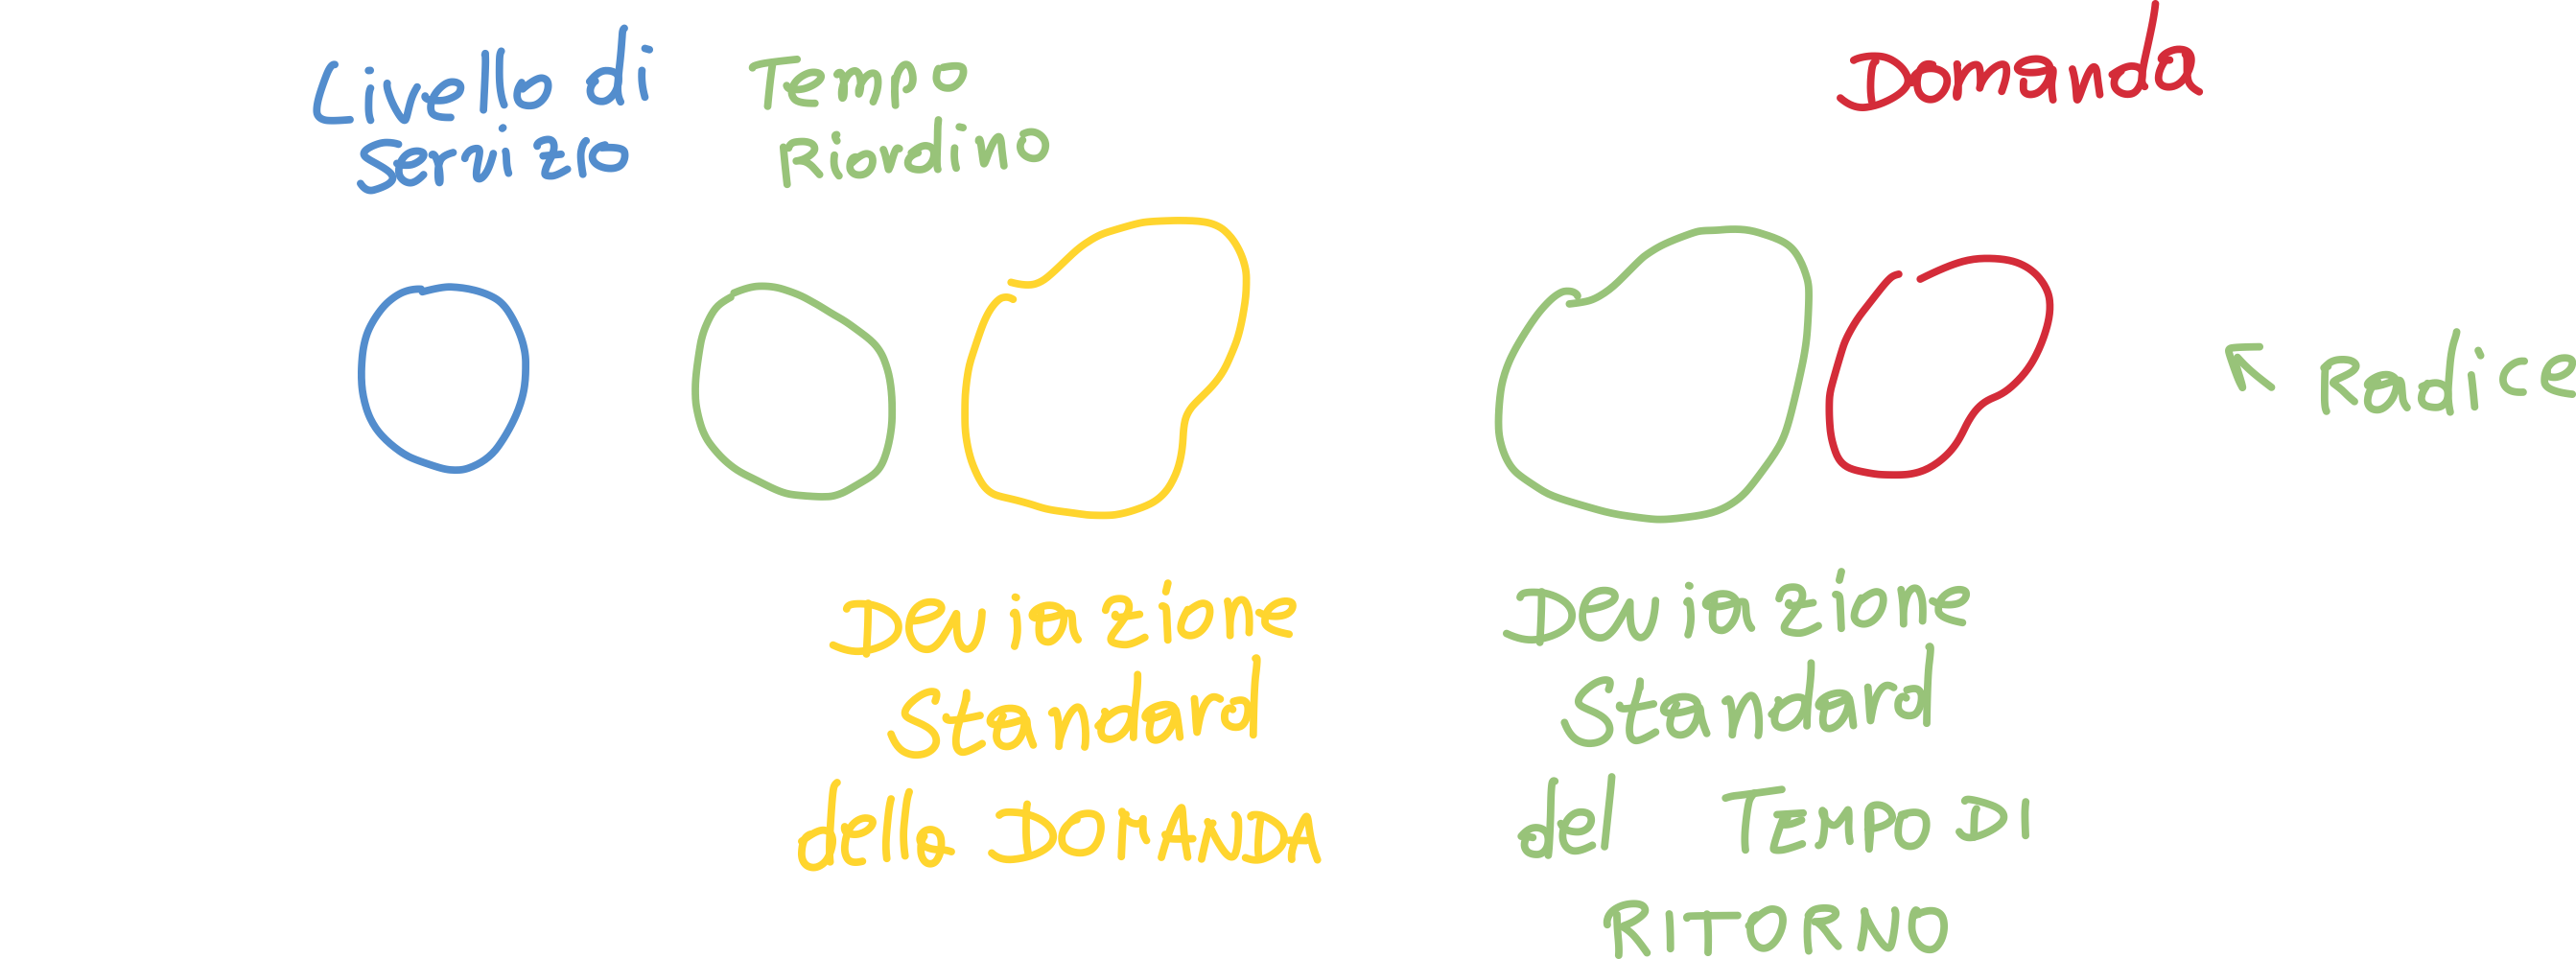 Livello di
servizio
Tempo
Riordino
Domanda
Radice
Deviazione
Standard
della DOMANDA
Deviazione
Standard
del TEMPO DI
RITORNO